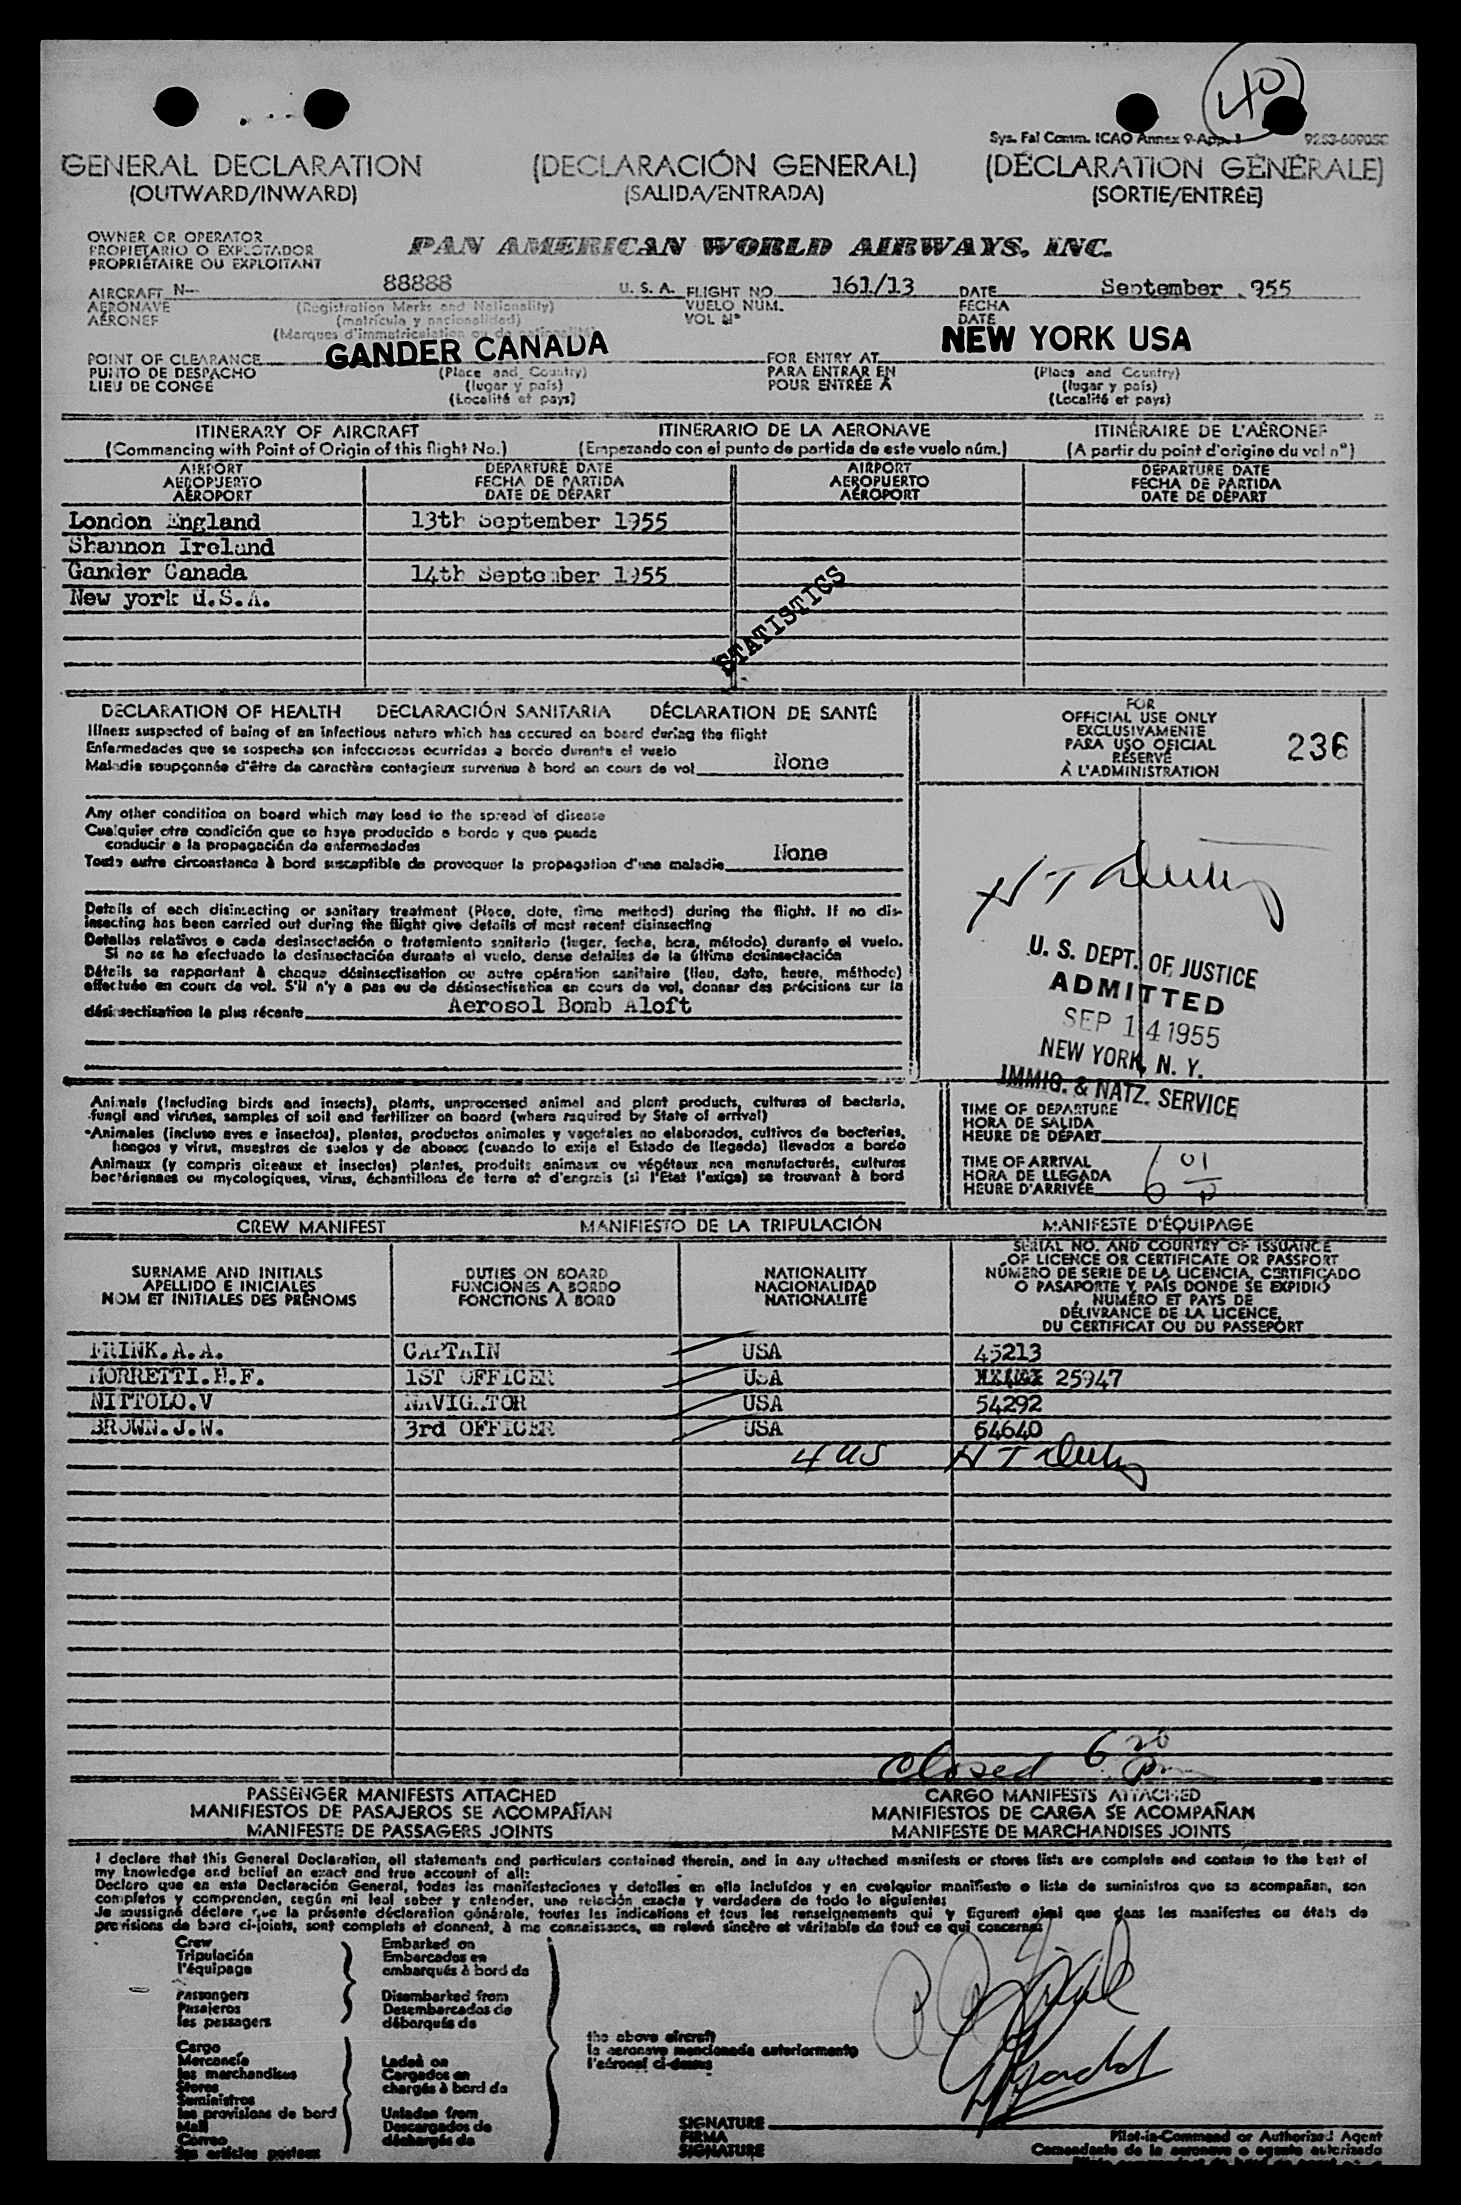 40
Sys. Fal Comm. ICAO Annex 9-App. 1
GENERAL DECLARATION (DECLARACIÓN GENERAL) (DÉCLARATION GÉNÉRALE)
(OUTWARD/INWARD) (SALIDA/ENTRADA) (SORTIE/ENTRÉE)
OWNER OR OPERATOR
PROPIETARIO O EXPLOTADOR
PROPRIÉTAIRE OU EXPLOITANT
PAN AMERICAN WORLD AIRWAYS, INC.
AIRCRAFT N— 88888 U. S. A. FLIGHT NO. 161/13 DATE September 955
AERONAVE (Registration Marks and Nationality) VUELO NÚM. FECHA
AÉRONEF (matrícula y nacionalidad) VOL Nº DATE
(Marques d'immatriculation ou de nationalité)
POINT OF CLEARANCE GANDER CANADA FOR ENTRY AT NEW YORK USA
PUNTO DE DESPACHO (Place and Country) PARA ENTRAR EN (Place and Country)
LIEU DE CONGÉ (lugar y país) POUR ENTRÉE À (lugar y país)
(Localité et pays) (Localité et pays)
ITINERARY OF AIRCRAFT ITINERARIO DE LA AERONAVE ITINÉRAIRE DE L'AÉRONEF
(Commencing with Point of Origin of this flight No.) (Empezando con el punto de partida de este vuelo núm.) (A partir du point d'origine du vol nº)
AIRPORT DEPARTURE DATE AIRPORT DEPARTURE DATE
AEROPUERTO FECHA DE PARTIDA AEROPUERTO FECHA DE PARTIDA
AÉROPORT DATE DE DÉPART AÉROPORT DATE DE DÉPART
London England 13th September 1955
Shannon Ireland
Gander Canada 14th September 1955
New york U.S.A.
STATISTICS
DECLARATION OF HEALTH DECLARACIÓN SANITARIA DÉCLARATION DE SANTÉ
Illness suspected of being of an infectious nature which has occured on board during the flight
Enfermedades que se sospecha son infecciosas ocurridas a bordo durante el vuelo
Maladie soupçonnée d'être de caractère contagieux survenue à bord en cours de vol None
Any other condition on board which may lead to the spread of disease
Cualquier otra condición que se haya producido a bordo y que pueda
conducir a la propagación de enfermedades
Toute autre circonstance à bord susceptible de provoquer la propagation d'une maladie None
Details of each disinsecting or sanitary treatment (Place, date, time method) during the flight. If no dis-
insecting has been carried out during the flight give details of most recent disinsecting
Detalles relativos a cada desinsectación o tratamiento sanitario (lugar, fecha, hora, método) durante el vuelo.
Si no se ha efectuado la desinsectación durante el vuelo, dense detalles de la última desinsectación
Détails se rapportant à chaque désinsectisation ou autre opération sanitaire (lieu, date, heure, méthode)
effectuée en cours de vol. S'il n'y a pas eu de désinsectisation en cours de vol, donner des précisions sur la
désinsectisation la plus récente Aerosol Bomb Aloft
FOR
OFFICIAL USE ONLY
EXCLUSIVAMENTE
PARA USO OFICIAL
RÉSERVÉ
À L'ADMINISTRATION
236
U. S. DEPT. OF JUSTICE
ADMITTED
SEP 14 1955
NEW YORK, N. Y.
IMMIG. & NATZ. SERVICE
Animals (including birds and insects), plants, unprocessed animal and plant products, cultures of bacteria,
fungi and viruses, samples of soil and fertilizer on board (where required by State of arrival)
Animales (incluso aves e insectos), plantas, productos animales y vegetales no elaborados, cultivos de bacterias,
hongos y virus, muestras de suelos y de abonos (cuando lo exija el Estado de llegada) llevados a bordo
Animaux (y compris oiseaux et insectes) plantes, produits animaux ou végétaux non manufacturés, cultures
bactériennes ou mycologiques, virus, échantillons de terre et d'engrais (si l'État l'exige) se trouvant à bord
TIME OF DEPARTURE
HORA DE SALIDA
HEURE DE DÉPART
TIME OF ARRIVAL
HORA DE LLEGADA
HEURE D'ARRIVÉE
6 01 P
CREW MANIFEST MANIFIESTO DE LA TRIPULACIÓN MANIFESTE D'ÉQUIPAGE
SURNAME AND INITIALS
APELLIDO E INICIALES
NOM ET INITIALES DES PRÉNOMS
DUTIES ON BOARD
FUNCIONES A BORDO
FONCTIONS À BORD
NATIONALITY
NACIONALIDAD
NATIONALITÉ
SERIAL NO. AND COUNTRY OF ISSUANCE
OF LICENCE OR CERTIFICATE OR PASSPORT
NÚMERO DE SERIE DE LA LICENCIA, CERTIFICADO
O PASAPORTE Y PAÍS DONDE SE EXPIDIÓ
NUMÉRO ET PAYS DE
DÉLIVRANCE DE LA LICENCE,
DU CERTIFICAT OU DU PASSEPORT
FRINK.A.A. CAPTAIN USA 45213
MORRETTI.H.F. 1ST OFFICER USA 25947
NITTOLO.V NAVIGATOR USA 54292
BROWN.J.W. 3rd OFFICER USA 64640
4 US
Closed 6 20 Pm
PASSENGER MANIFESTS ATTACHED CARGO MANIFESTS ATTACHED
MANIFIESTOS DE PASAJEROS SE ACOMPAÑAN MANIFIESTOS DE CARGA SE ACOMPAÑAN
MANIFESTE DE PASSAGERS JOINTS MANIFESTE DE MARCHANDISES JOINTS
I declare that this General Declaration, all statements and particulars contained therein, and in any attached manifests or stores lists are complete and contain to the best of
my knowledge and belief an exact and true account of all:
Declaro que en esta Declaración General, todas las manifestaciones y detalles en ella incluídos y en cualquier manifiesto o lista de suministros que se acompañan, son
completos y comprenden, según mi leal saber y entender, una relación exacta y verdadera de todo lo siguiente:
Je soussigné déclare que la présente déclaration générale, toutes les indications et tous les renseignements qui y figurent ainsi que dans les manifestes ou états de
provisions de bord ci-joints, sont complets et donnent, à ma connaissance, un relevé sincère et véritable de tout ce qui concerne:
Crew
Tripulación
l'équipage
Passengers
Pasajeros
les passagers
Cargo
Mercancía
les marchandises
Stores
Suministros
les provisions de bord
Mail
Correo
les articles postaux
Embarked on
Embarcados en
embarqués à bord de
Disembarked from
Desembarcados de
débarqués de
Laded on
Cargados en
chargés à bord de
Unladen from
Descargados de
déchargés de
the above aircraft
la aeronave mencionada anteriormente
l'aéronef ci-dessus
SIGNATURE
FIRMA
SIGNATURE
Pilot-in-Command or Authorized Agent
Comandante de la aeronave o agente autorizado